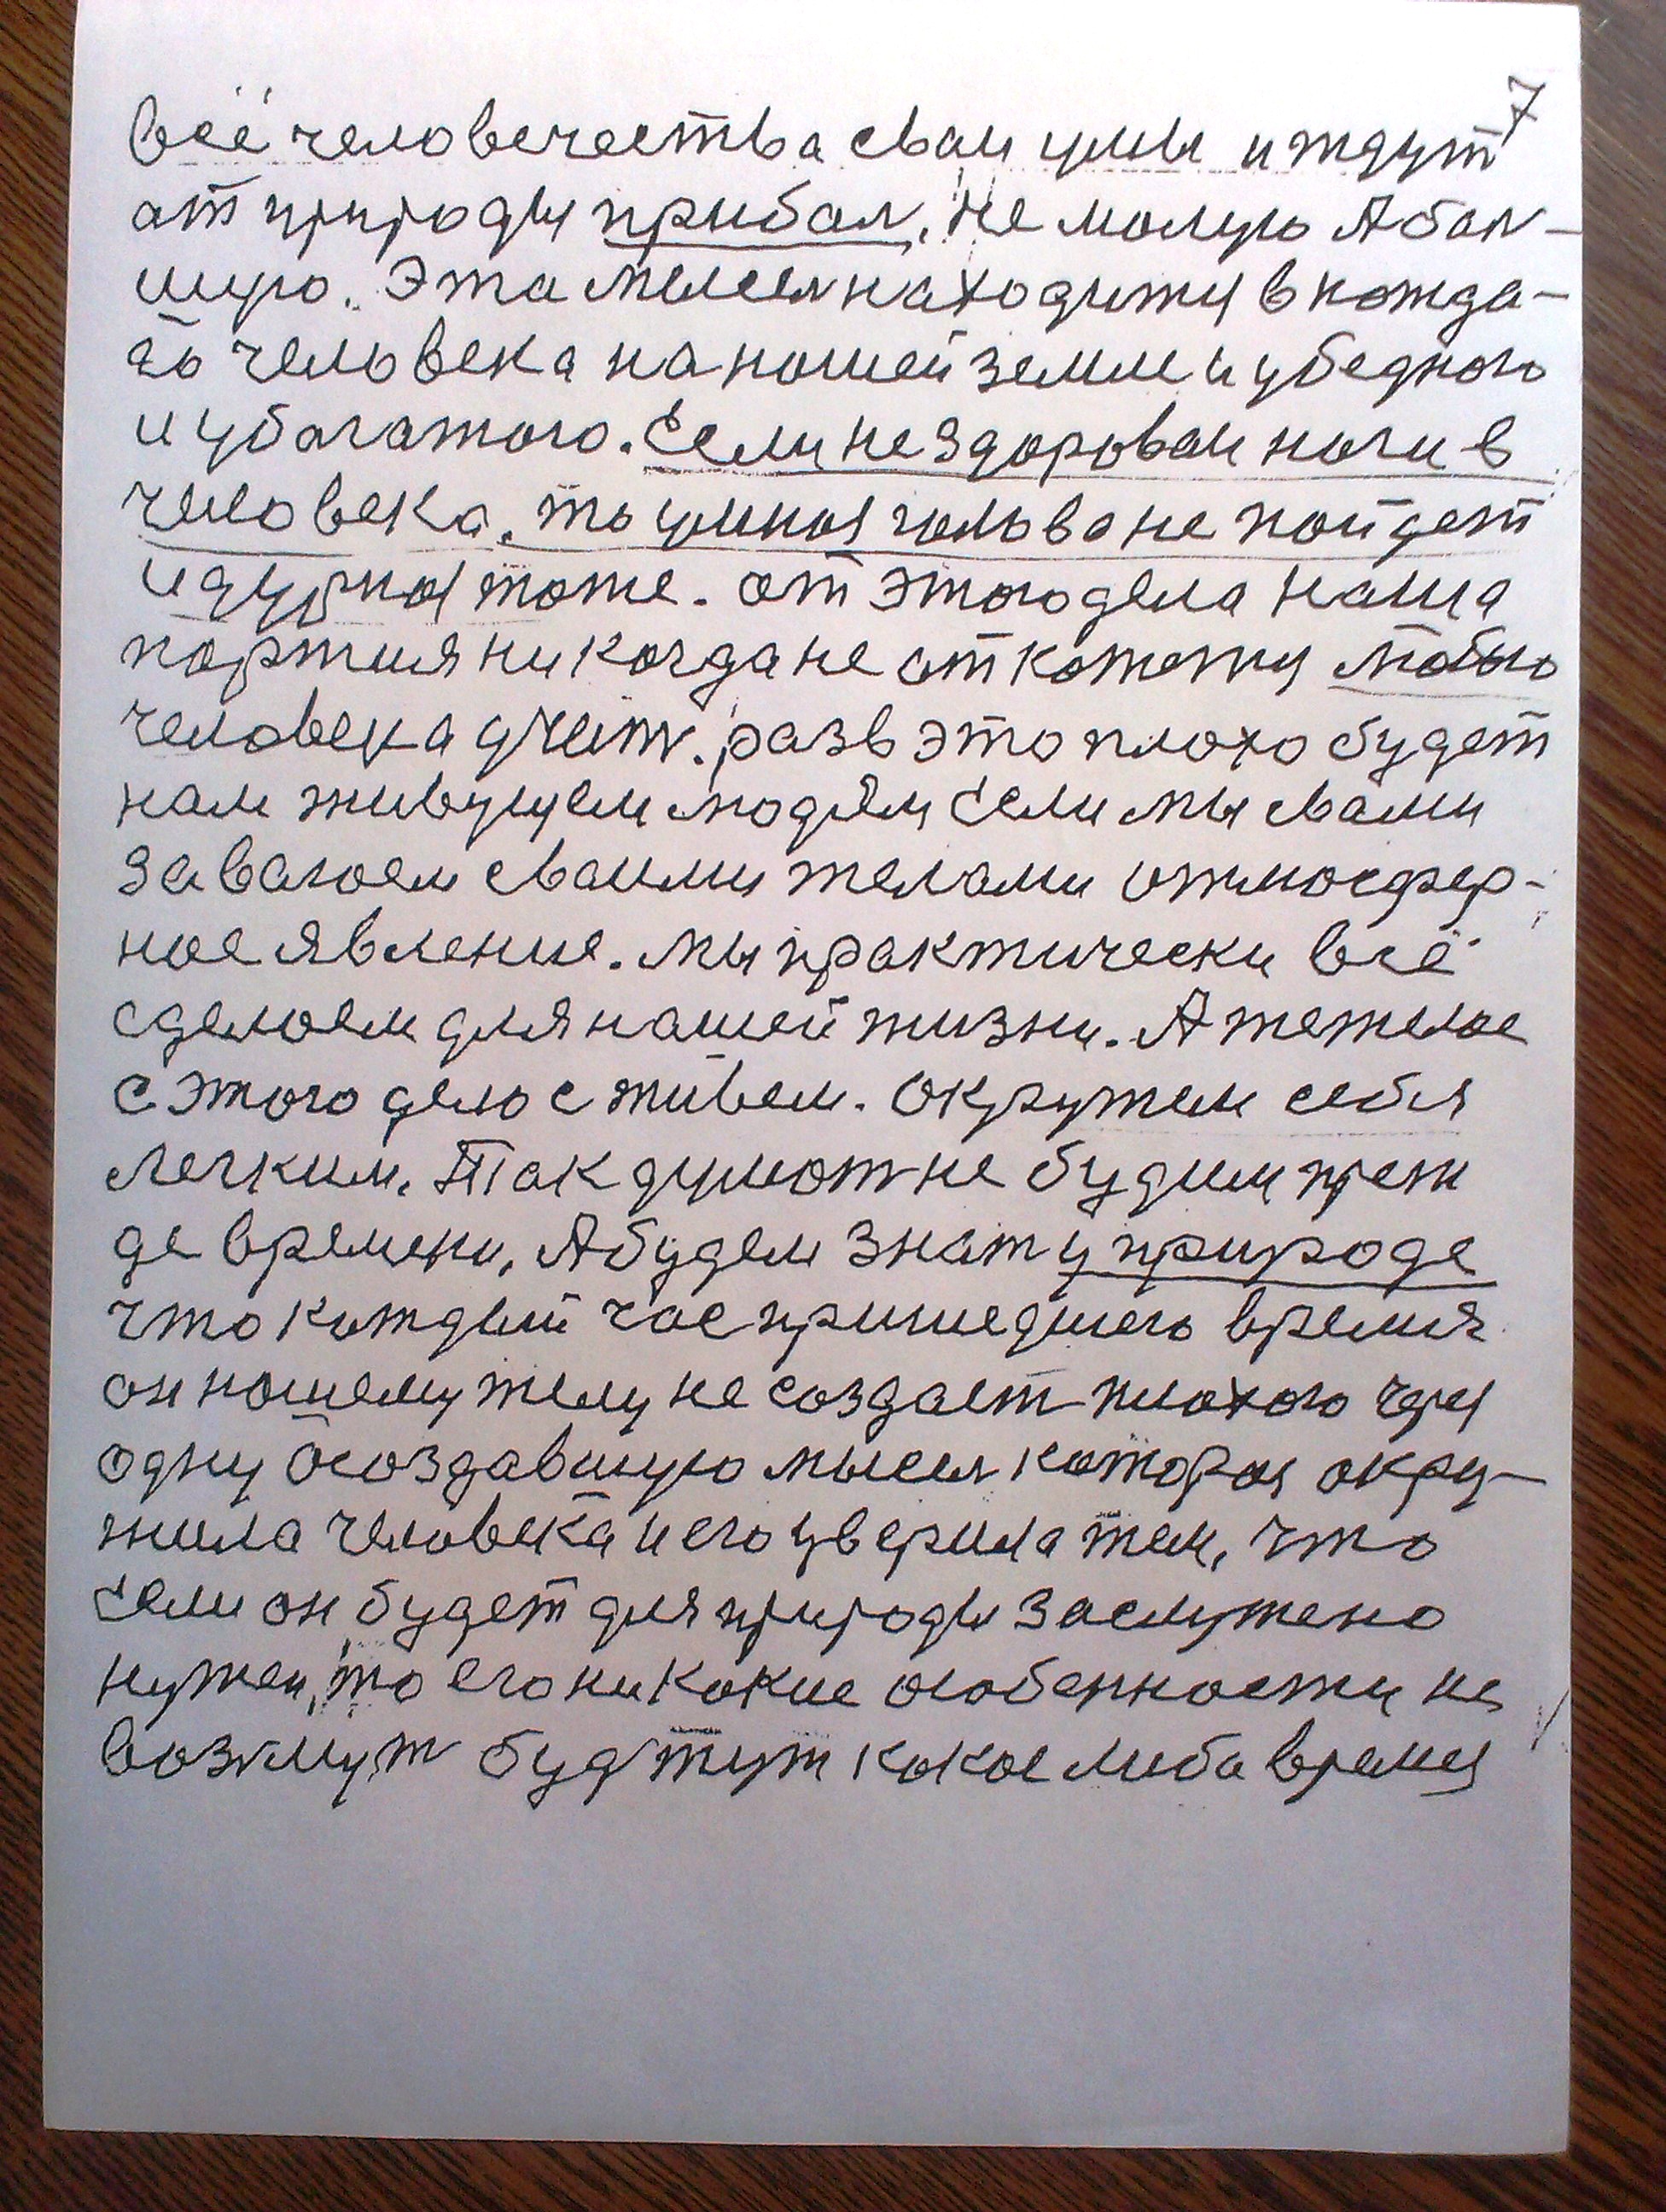 7
всё человечества сваи умы и ждут
от природы прибал, не малую А бал-
шую. Эта мысел находитця в кажда-
го человека на нашей земле и у бедного
и у багатого. Если не здороваи ноги в
человека, то умная голова не пойдет
и дурная тоже. от этого дела наша
партия никогда не откажетця
человека учит. разв это плохо будет
нам живущем людям если мы свами
завагоем сваими телами отмосфер-
ное явление. Мы практически всё
сделоем для нашей жизни. А тежелое
с этого дело с живем. Окружем себя
легким. Так думат не будим преж
де времени, А будем знат у природе
что каждый час пришедшего время
он нашему телу не создает плохого
одну создавшую мысел каторая окру-
жила человека и его уверила тем, что
если он будет для природы заслужено
нужен, то его никакие особенности не
возмут буд тут какое либа время